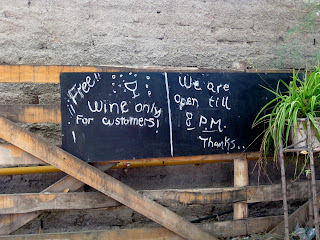 ¡¡Free!!
Wine only
For customers!
We are
open till
8 P.M.
Thanks..